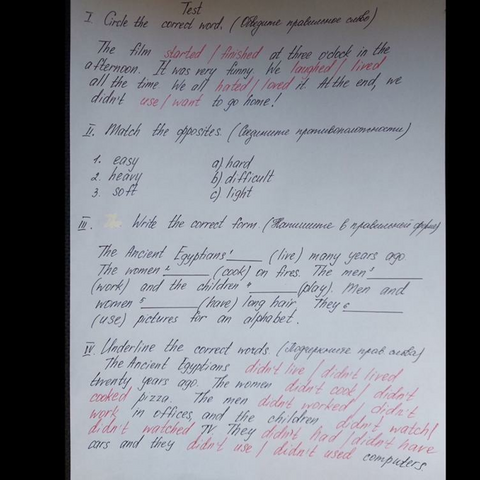 Test
I. Circle the correct word. (Обведите правильное слово)
The film started / finished at three o'clock in the
afternoon. It was very funny. We laughed / lived
all the time. We all hated / loved it. At the end, we
didn't use / want to go home!
II. Match the opposites. (Соедините противоположности)
1. easy a) hard
2. heavy b) difficult
3. soft c) light
III. Write the correct form (Напишите в правильной форме)
The Ancient Egyptians ¹____ (live) many years ago
The women ²____ (cook) on fires. The men ³____
(work) and the children ⁴____ (play). Men and
women ⁵____ (have) long hair. They ⁶____
(use) pictures for an alphabet.
IV Underline the correct words (Подчеркните прав. слова)
The Ancient Egyptians didn't live / didn't lived
twenty years ago. The women didn't cook / didn't
cooked pizza. The men didn't worked / didn't
work in offices, and the children didn't watch /
didn't watched TV. They didn't had / didn't have
cars and they didn't use / didn't used computers